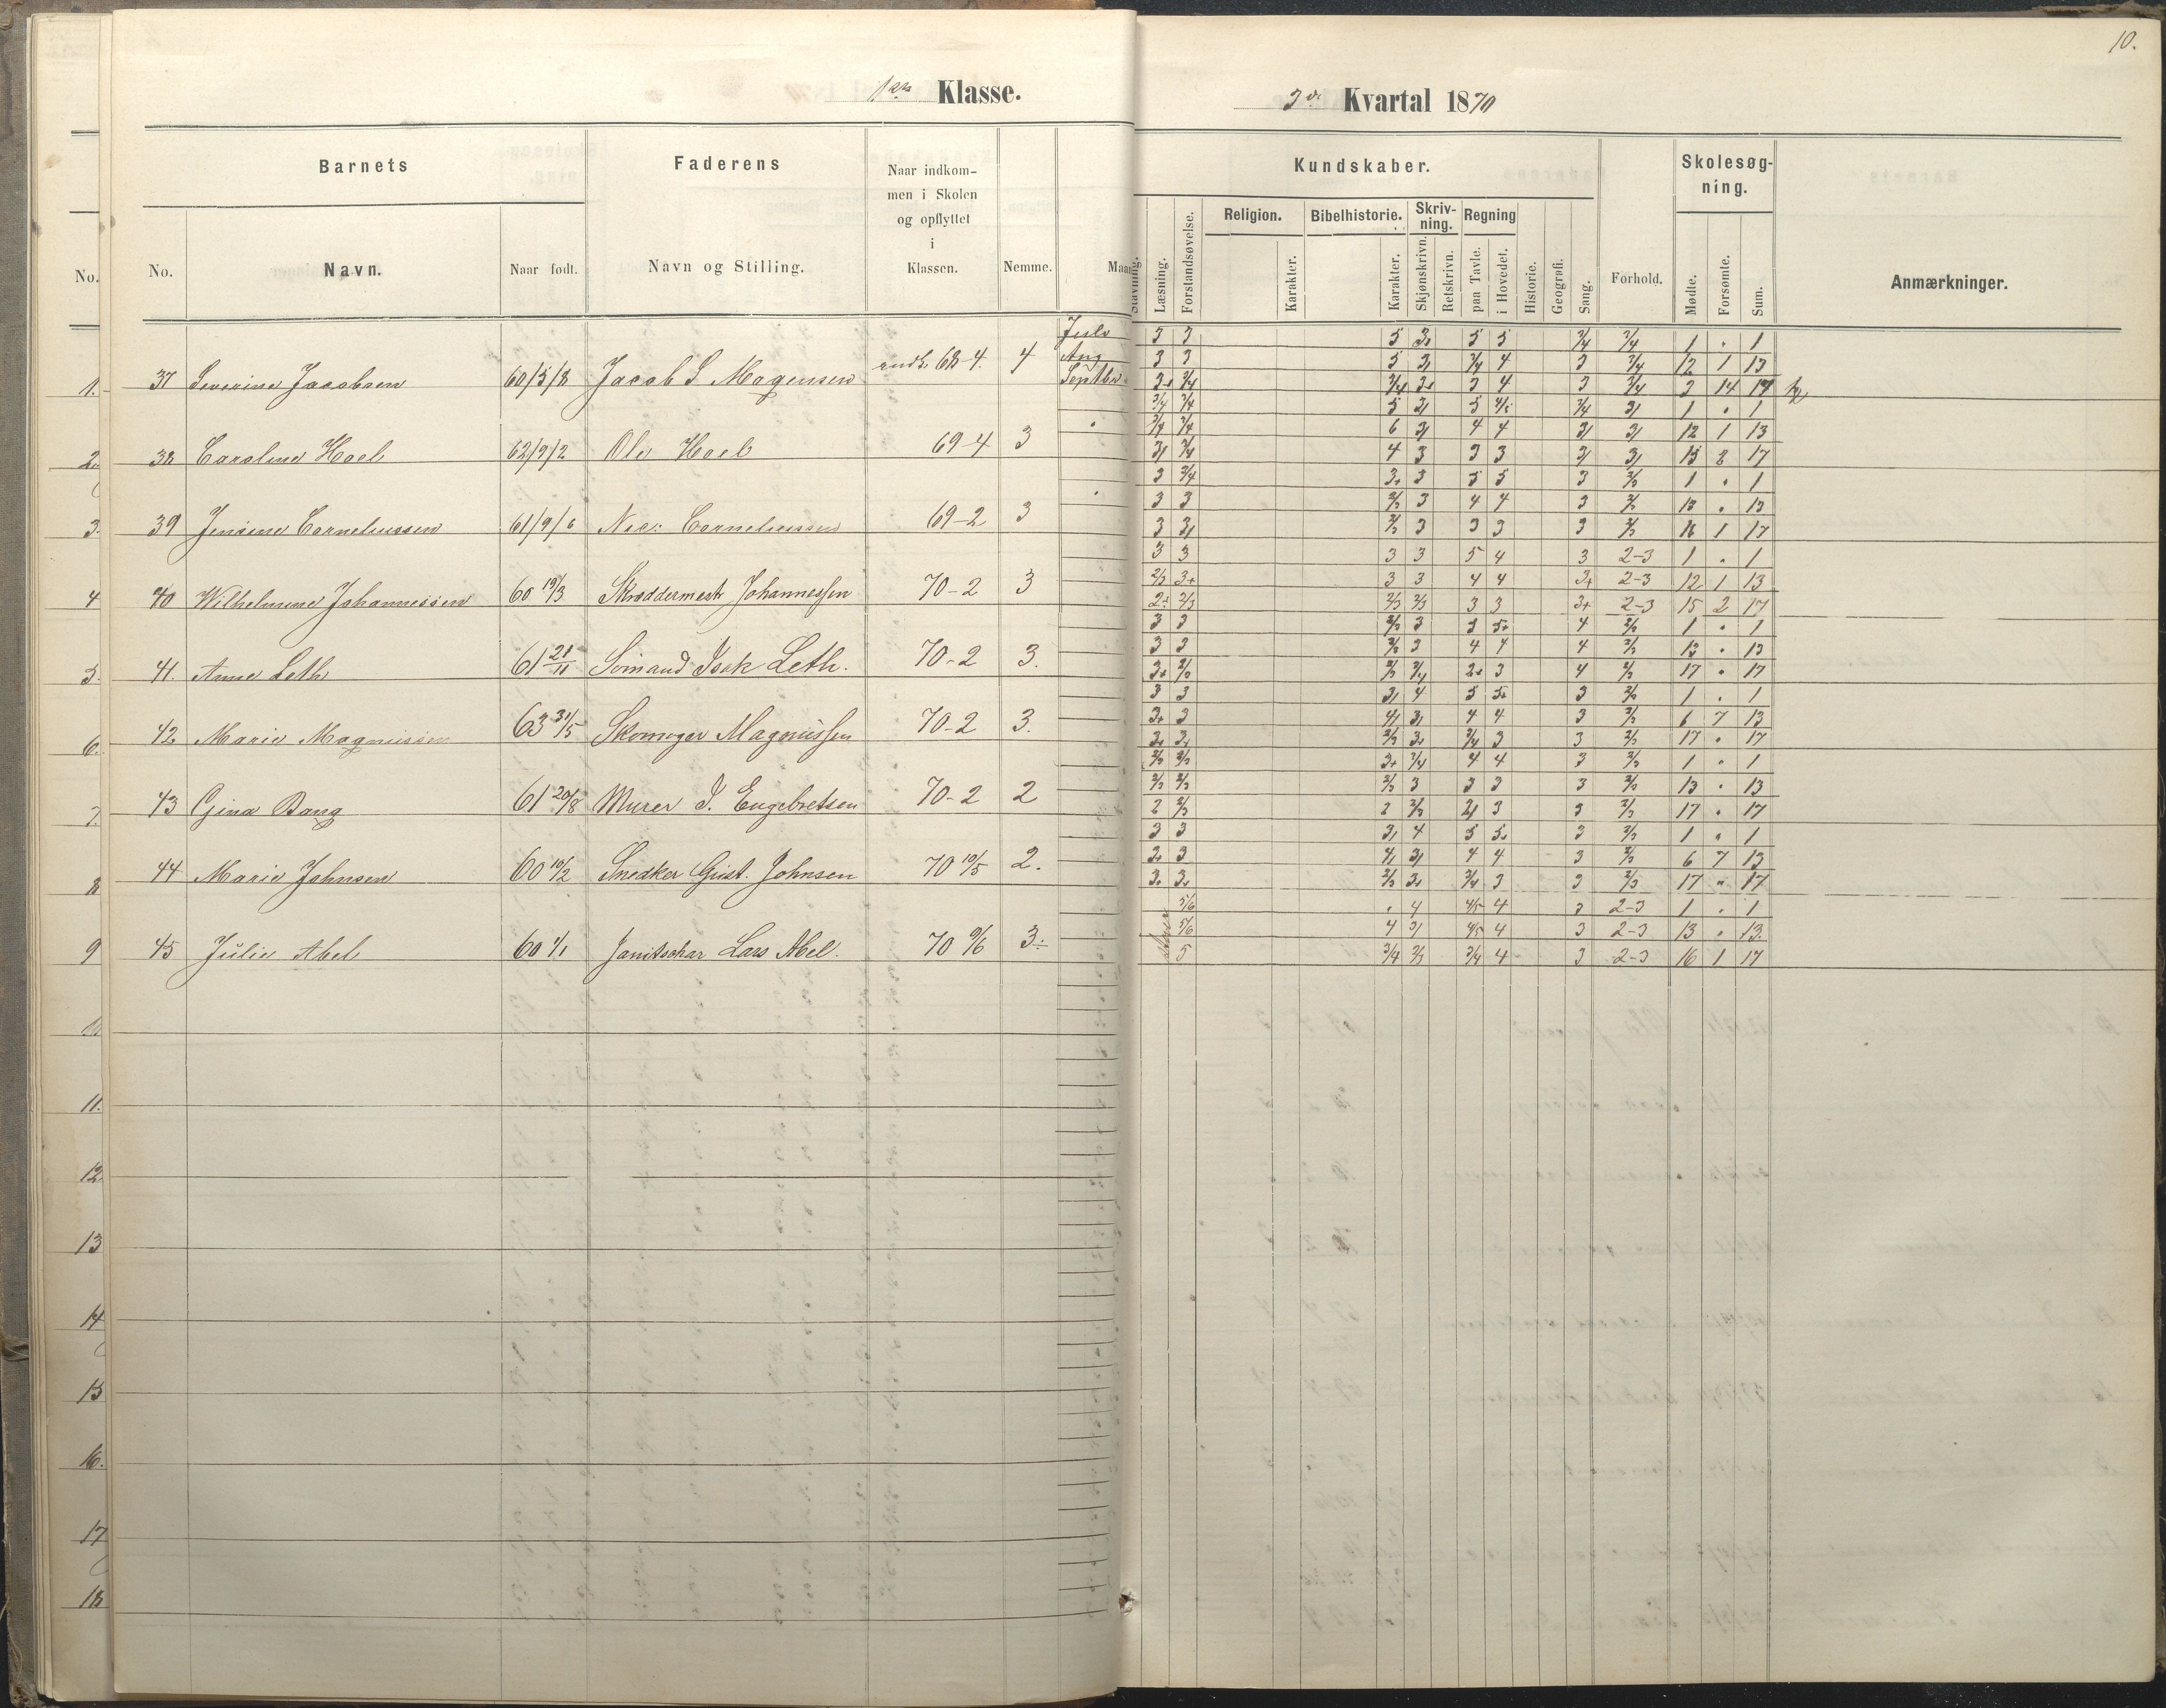 10.
Klasse.
3die Kvartal 1870
No.
Barnets
No. Navn. Naar født.
Faderens
Navn og Stilling.
Naar indkommen i Skolen og opflyttet i Klassen.
Nemme.
Maan
Kundskaber.
Stavning. Læsning. Forstandsøvelse.
Religion. Karakter.
Bibelhistorie. Karakter.
Skrivning. Skjønskrivn. Retskrivn.
Regning paa Tavle. i Hovedet.
Historie. Geografi. Sang.
Forhold.
Skolesøgning.
Mødte. Forsømte. Sum.
Anmærkninger.
Juli 3 3 5 3 5 5 3/4 3/4 1 . 1
Aug 3 3 5 3/4 4 3 3/4 12 1 13
1. 37 Severine Jacobsen 60/5/8 Jacob S Mogensen 68-4. 4 Septbr 3/4 3/4 3 4 3 3/4 3 14 17
3/4 3/4 5 5 3/4 1 . 1
3/4 6 4 4 12 1 13
2. 38 Caroline Hoel 62/9/2 Ole Hoel 69-4 3 3/4 4 3 3 3 15 2 17
3 3/4 3 5 5 3 1 . 1
3 3 2/3 3 4 4 3 13 . 13
3. 39 Jensine Corneliussen 61/9/6 Corneliussen 69-2 3 3 3 3 3 3 16 1 17
3 3 3 3 5 4 3 2-3 1 . 1
2/3 3+ 3 3 4 4 3+ 2-3 12 1 13
4 40 Wilhelmine Johannessen 60 19/3 Skræddermest Johannessen 70-2 3 2/3 2/3 2/3 3 3 3+ 2-3 15 2 17
3 3 2/3 3 5 4 2/3 1 . 1
3 3 2/3 3 4 4 4 2/3 13 . 13
5. 41. Anne Leth 61 21/11 Sømand Isak Leth. 70-2 3. 3 4 17 . 17
3 3 4 5 3 2/3 1 . 1
3+ 3 4 4 3 2/3 6 7 13
6. 42 Marie Magnussen 63 31/5 Skomager Magnussen 70-2 3. 2/3 3/4 3 3 2/3 17 . 17
2/3 2/3 3+ 3/4 4 4 3 2/3 1 . 1
2/3 2/3 2/3 3 3 3 3 2/3 13 . 13
7. 43 Gina Bang 61 20/8 Murer I. Engebretsen 70-2 2 2 2/3 2 2/3 3 3 2/3 17 . 17
3 3 4 5 3 2/3 1 . 1
3+ 3 4 4 3 2/3 6 7 13
8 44 Marie Johnsen 60 10/2 Snedker Gust. Johnsen 70 10/5 2. 2/3 3/4 3 3 2/3 17 . 17
5/6 . 4 4/5 4 3 2-3 1 . 1
5/6 4 4/5 4 3 2-3 13 . 13.
9 45 Julie Abel 60 1/1 Janitschar Lars Abel. 70 3 5 3/4 2/3 3/4 4 3 2-3 16 1 17
10.
11.
12
13
14
15
16.
17
18